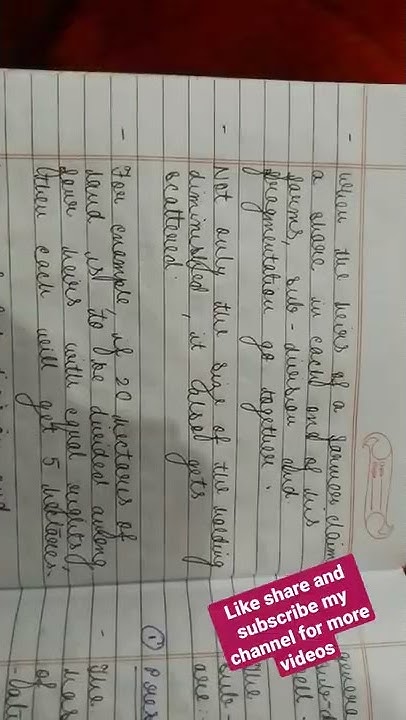 - When the heirs of a farmer claim
a share in each one of his
farms, sub-division and
fragmentation go together.
- Not only the size of the holding
diminished, it also gets
scattered.
- For example, if 20 hectares of
land is to be divided among
four heirs with equal rights,
then each will get 5 hectares.
are:-
①
- The
of
Like share and
subscribe my
channel for more
videos